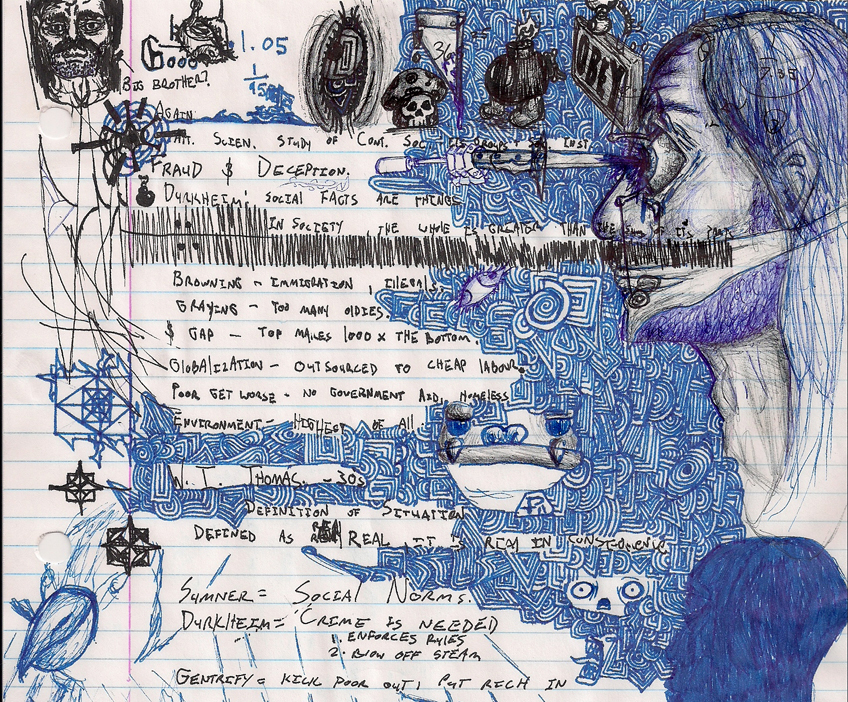 Good
1.05
1/15
BIG BROTHER?
AGAIN
OBEY
SCIEN. STUDY OF CONT. SOC. ITS GROUPS & SOC. INST
FRAUD $ DECEPTION.
DYRKHEIM: SOCIAL FACTS ARE THINGS
IN SOCIETY, THE WHOLE IS GREATER THAN THE SUM OF ITS PARTS
BROWNING - IMMIGRATION, ILLEGALS.
GRAYING - TOO MANY OLDIES.
$ GAP - TOP MAKES 1000 X THE BOTTOM
GLOBALIZATION - OUTSOURCED TO CHEAP LABOUR.
POOR GET WORSE - NO GOVERNMENT AID, HOMELESS
ENVIRONMENT - HIGHEST OF ALL.
W. I. THOMAS. - 30s
DEFINITION OF SITUATION
DEFINED AS REAL, IT IS REAL IN CONSEQUENCE
SUMNER = SOCIAL NORMS.
DYRKHEIM = CRIME IS NEEDED
1. ENFORCES RULES
2. BLOW OFF STEAM
GENTRIFY = KICK POOR OUT, PUT RICH IN